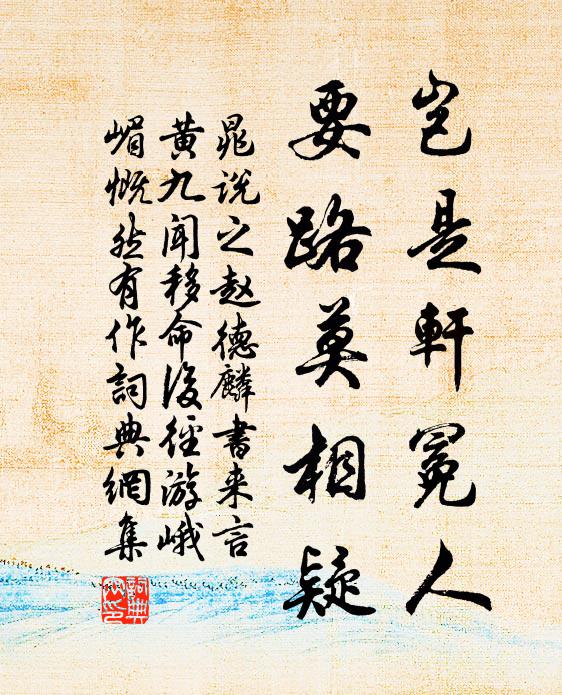 岂是軒冕人
要路莫相疑
晁说之赵德麟書来言
黄九闻移命後徑游峨
嵋慨然有作詞典網集